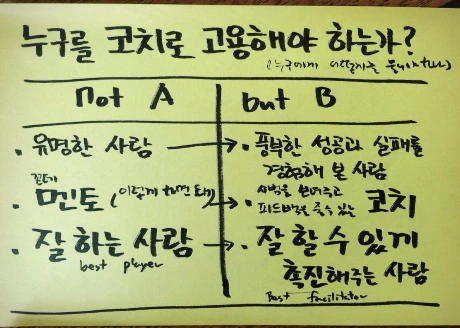 누구를 코치로 고용해야 하는가?
(누구에게
not A
but B
· 유명한 사람 →
· 풍부한 성공과 실패를
경험해 본 사람
꼰대
· 멘토 (이렇게 하면 돼) →
· 시범을 보여주고
피드백을 줄 수 있는 코치
· 잘 하는 사람 →
best player
· 잘 할 수 있게
촉진해주는 사람
Best facilitator